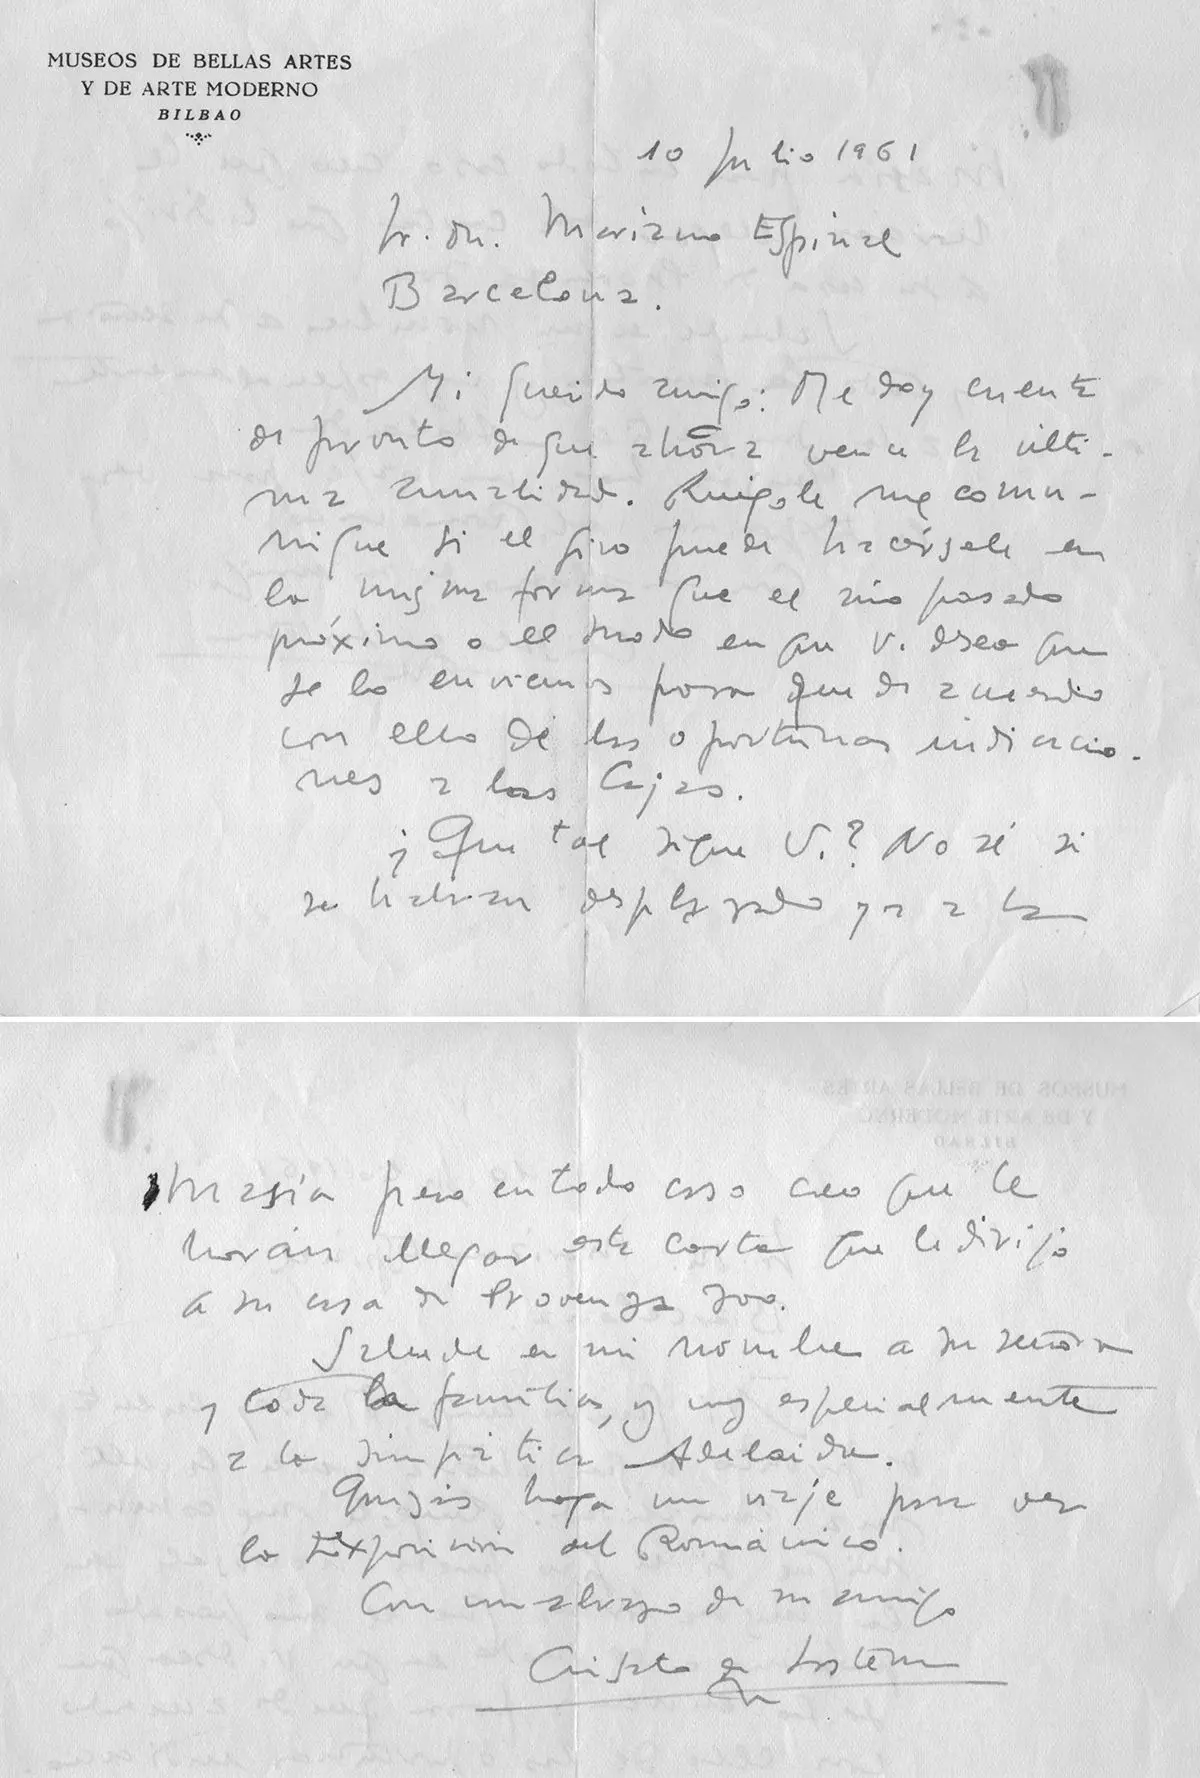 MUSEOS DE BELLAS ARTES
Y DE ARTE MODERNO
BILBAO
10 Julio 1961
Sr. Dn. Mariano Espinal
Barcelona.
Mi querido amigo: Me doy cuenta
de pronto de que ahora vence la últi-
ma anualidad. Ruégole me comu-
nique si el giro puede hacérsele en
la misma forma que el año pasado
próximo o el modo en que V. desea que
se lo enviemos para que de acuerdo
con ello dé las oportunas indicacio-
nes a las Cajas.
¿Que tal sigue V.? No sé si
se habran desplazado ya a la
Masía pero en todo caso creo que le
harán llegar esta carta que le dirijo
a su casa de Provenza 300.
Salude en mi nombre a su señora
y toda la familia, y muy especialmente
a la simpática Adelaida.
Quizás haga un viaje para ver
la Exposición del Románico.
Con un abrazo de su amigo
Crisanto de Lasterra
MUSEOS DE BELLAS ARTES
Y DE ARTE MODERNO
BILBAO